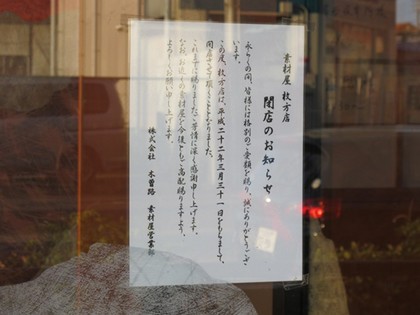 素材屋 枚方店
閉店のお知らせ
永らくの間、皆様には格別のご愛顧を賜り、誠にありがとうござ
います。
この度、枚方店は、平成二十二年三月三十一日をもちまして、
閉店させて頂くこととなりました。
これまでに賜りましたご厚情に深く感謝申し上げます。
なお、お近くの素材屋を今後ともご高配賜りますよう、
よろしくお願い申し上げます。
株式会社 木曽路 素材屋営業部